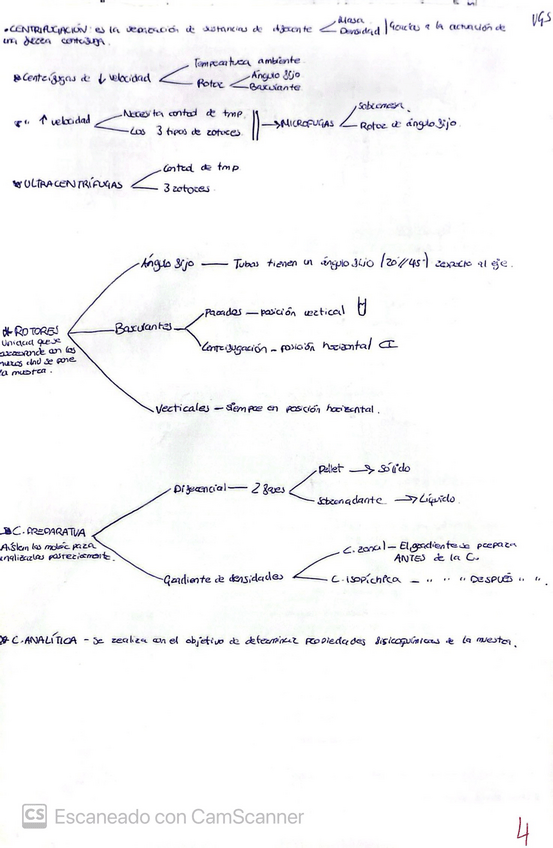 VGS
•CENTRIFUGACIÓN: es la separación de sustancias de diferente Masa Densidad | Gracias a la actuación de
una fuerza centrífuga.
Centrífugas de ↓ velocidad
Temperatura ambiente
Rotor
Ángulo fijo
Basculante
" ↑ velocidad
Necesita control de tmp.
Los 3 tipos de rotores
→MICROFUGAS
Sobremesa.
Rotor de ángulo fijo
ULTRACENTRÍFUGAS
Control de tmp
3 rotores
ROTORES
Unidad que se
corresponde con los
huecos dnd se pone
la muestra.
Ángulo fijo — Tubos tienen un ángulo fijo (20°//45°) respecto al eje.
Basculantes
Parados — posición vertical
Centrifugación - posición horizontal
Verticales - siempre en posición horizontal.
C. PREPARATIVA
Aíslan las molec para
analizarlas posteriormente.
Diferencial — 2 fases
Pellet → Sólido
Sobrenadante → Líquido.
Gradiente de densidades
C. zonal — El gradiente se prepara
ANTES de la C.
C. ISOPÍCNICA - " " " DESPUÉS " ".
C. ANALÍTICA - se realiza con el objetivo de determinar propiedades fisicoquímicas de la muestra.
CS Escaneado con CamScanner
4